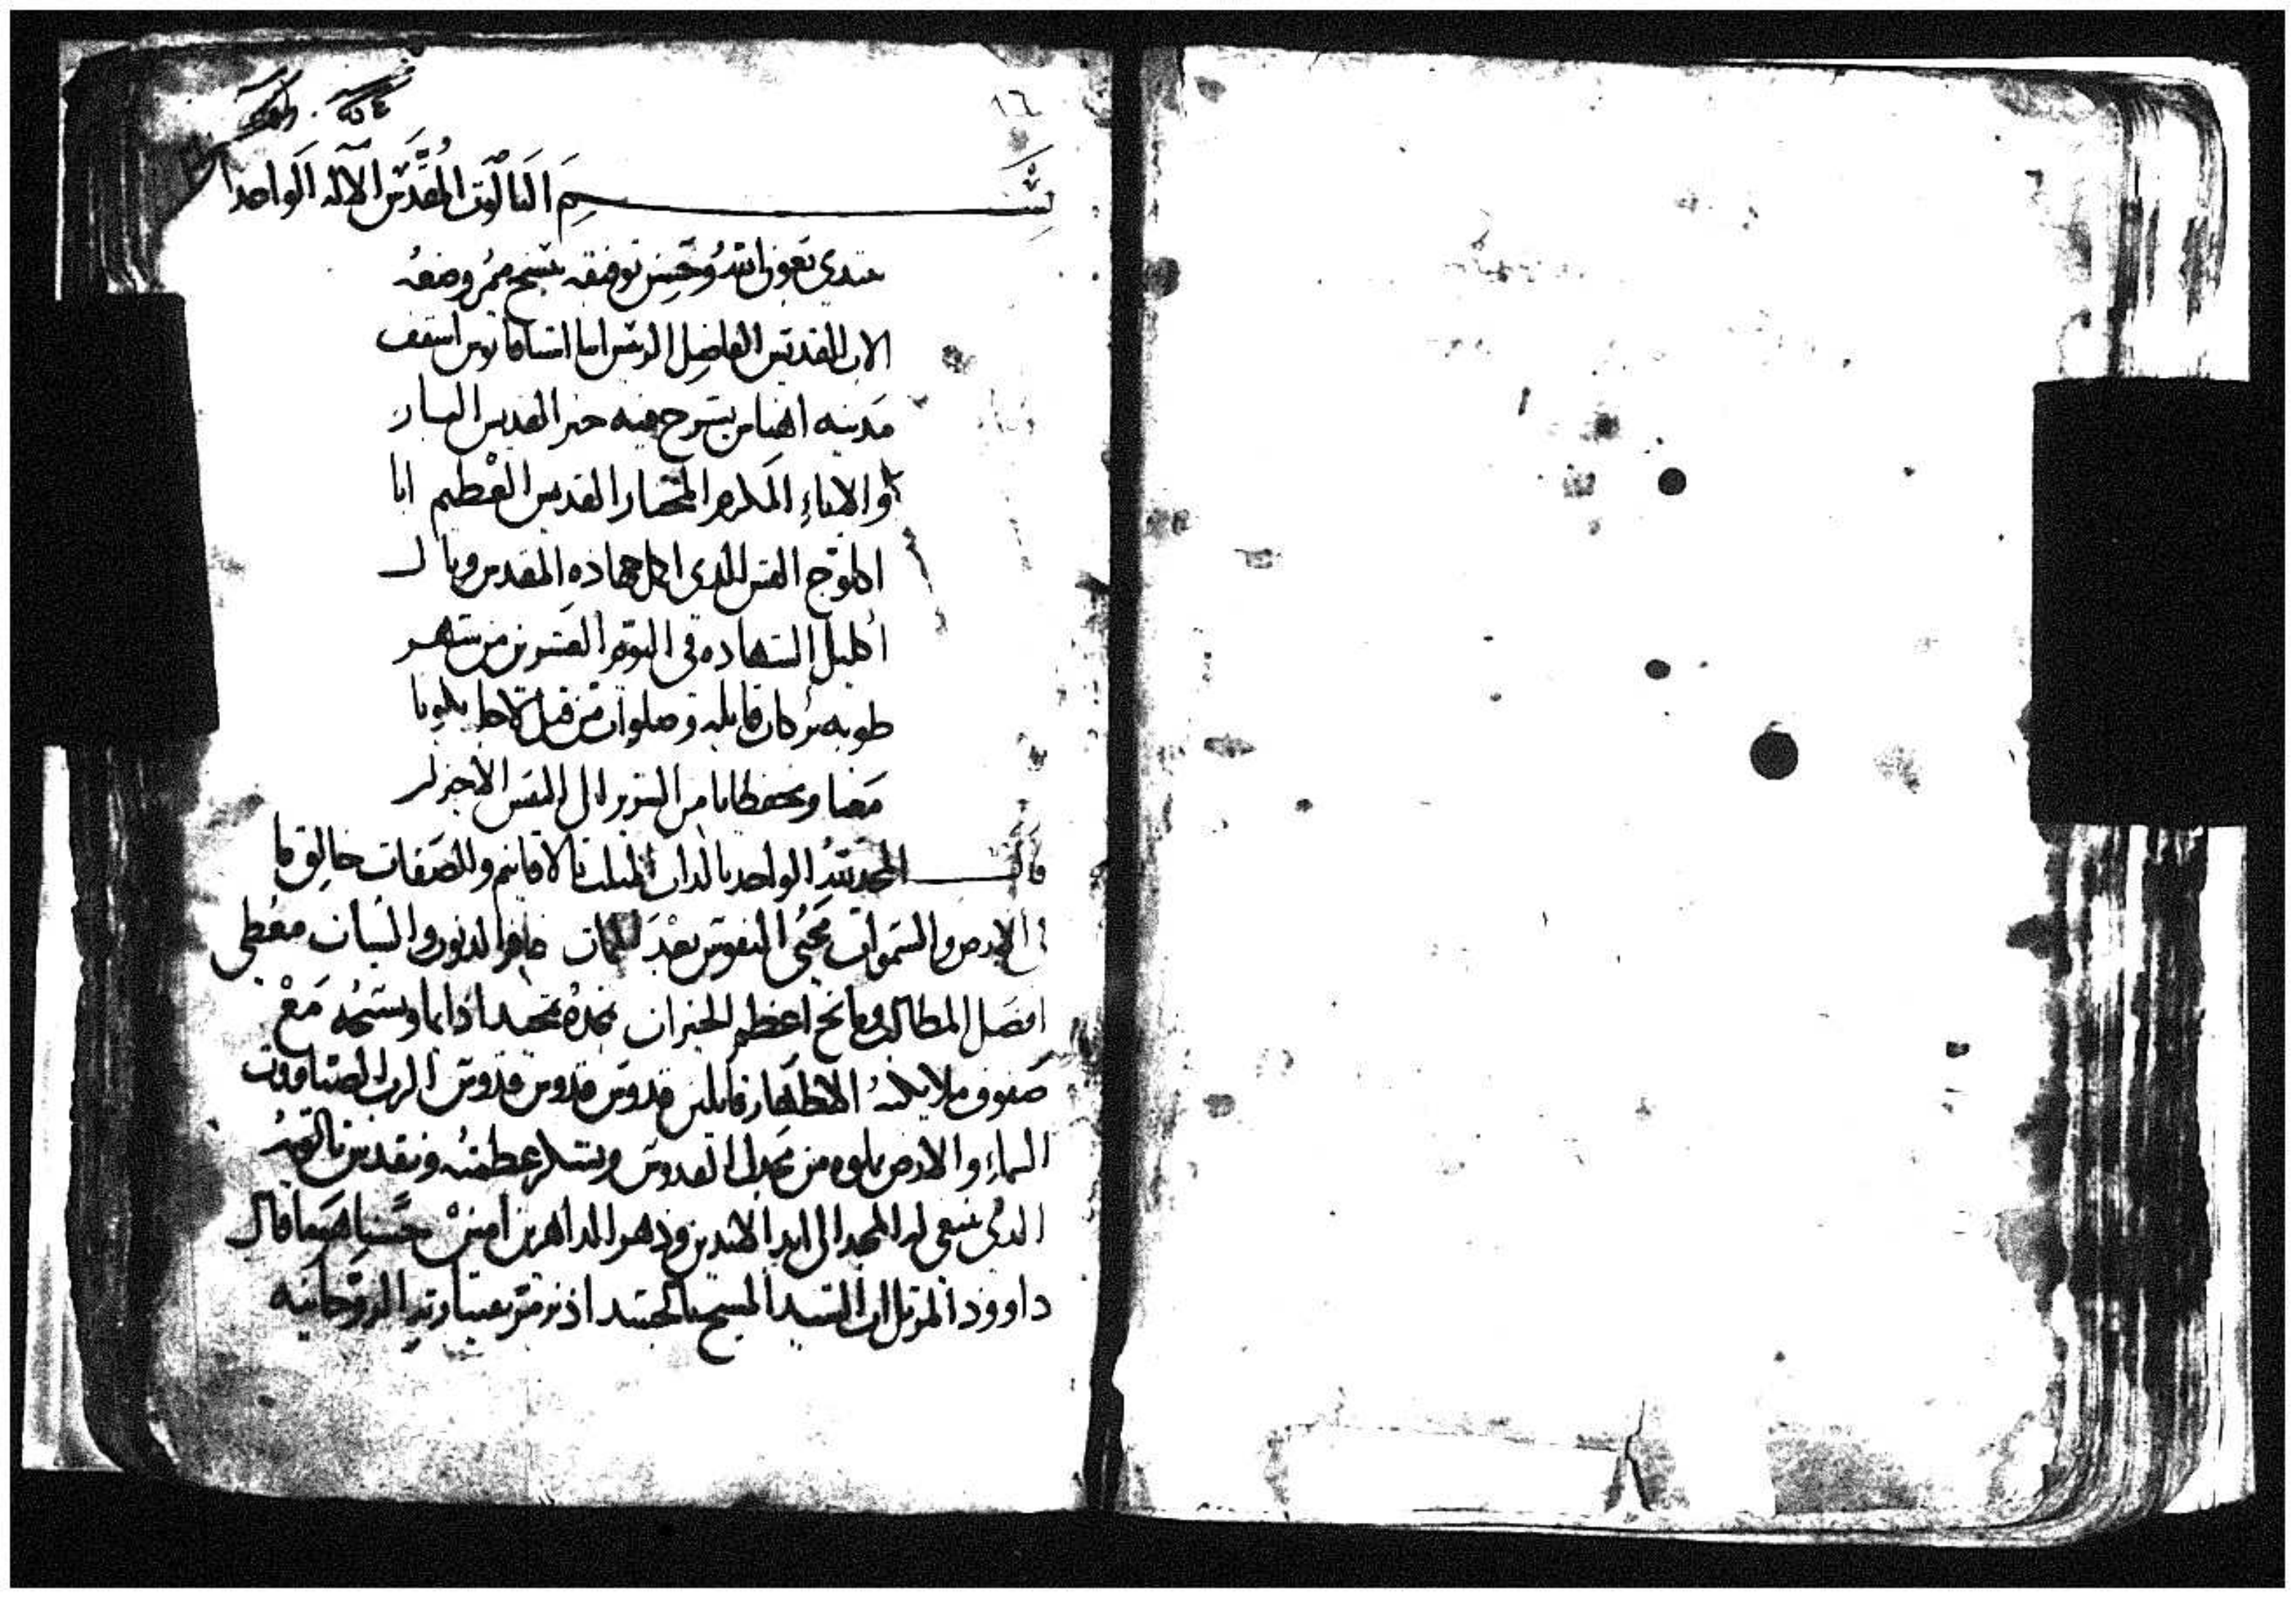 ١٦
بسم الثالوت المقدس الاله الواحد
نبتدي بعون الله وحسن توفيقه بنسخ ميمر وضعه
الاب القديس الفاضل الرئيس انبا اسافانوس اسقف
مدينه اهناس يشرح فيه خبر القديس البار
والاناء المكرم المختار القديس العظيم ابا
اكلوج القس الذي اكمل جهاده المقدس ونال
اكليل الشهاده في اليوم العشرين من شهر
طوبه بركات وصلواته تكونا
معنا وتحفظنا من الشرير الي النفس الاخير
قال المجد لله الواحد بالذات المثلث بالاقانيم والصفات خالق ما
في الارض والسموات محيي النفوس بعد الممات غافر الذنوب والسيات معطي
افضل المطالب ومانح اعظم الخيرات نمجده تمجيدا دايما ونسبحه مع
صفوف ملايكته الاطهار قايلين قدوس قدوس قدوس الرب الصباووت
السماء والارض مملوه من مجدك القدوس ونشكر عظمته ونقدس
الدي ينبغي له المجد الي ابد الابدين ودهر الداهرين امين قال
داوود المرتل ان السيد المسيح بالجسد الروحانيه